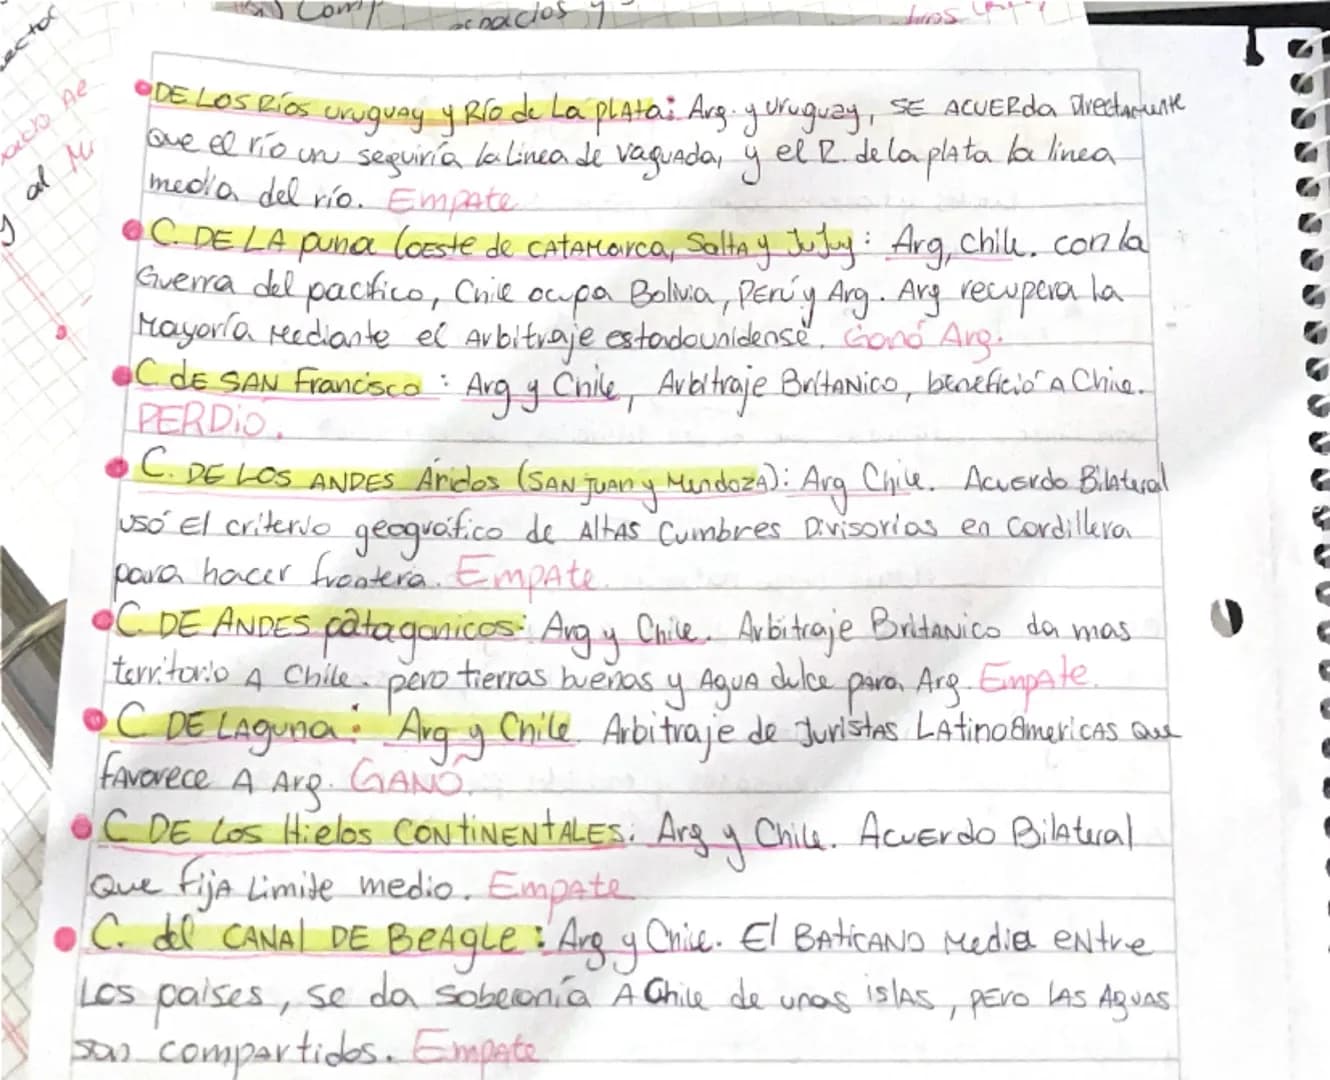 DE LOS Ríos uruguay y Río de La pLAta: Arg. y uruguay, SE ACUERda Directamente
Que el río uru seguiría la Linea de vaguada, y el R. de la plata la linea
media del río. Empate
C. DE LA puna (oeste de CATAMarca, Salta y Jujuy: Arg, Chile. con la
Guerra del pacífico, Chile ocupa Bolivia, PERú y Arg. Arg recupera la
Mayoría Mediante el Arbitraje estadounidense. Ganó Arg.
C de SAN Francisco : Arg y Chile, Arbitraje BritANico, benefició A Chile.
PERDió.
C. DE LOS ANDES Áridos (SAN juan y Mendoza): Arg Chile. Acuerdo Bilateral
usó El criterio geográfico de Altas Cumbres Divisorias en Cordillera
para hacer frontera. Empate.
C. DE ANDES patagonicos: Arg y Chile. Arbitraje BritANico da mas
territorio A Chile. pero tierras buenas y AGUA dulce para Arg. Empate.
C DE LAguna: Arg y Chile. Arbitraje de Juristas LAtinoAmericAs que
favorece A Arg. GANÓ.
C DE Los Hielos CONtiNENtALES: Arg y Chile. Acuerdo Bilateral
Que fija Limite medio. Empate
C. del CANAl DE BeAGLe: Arg y Chile. El BAtiCANO Media entre
Los paises, se da soberonía A Chile de unas islas, pero LAS AguAs
son compartidos. Empate